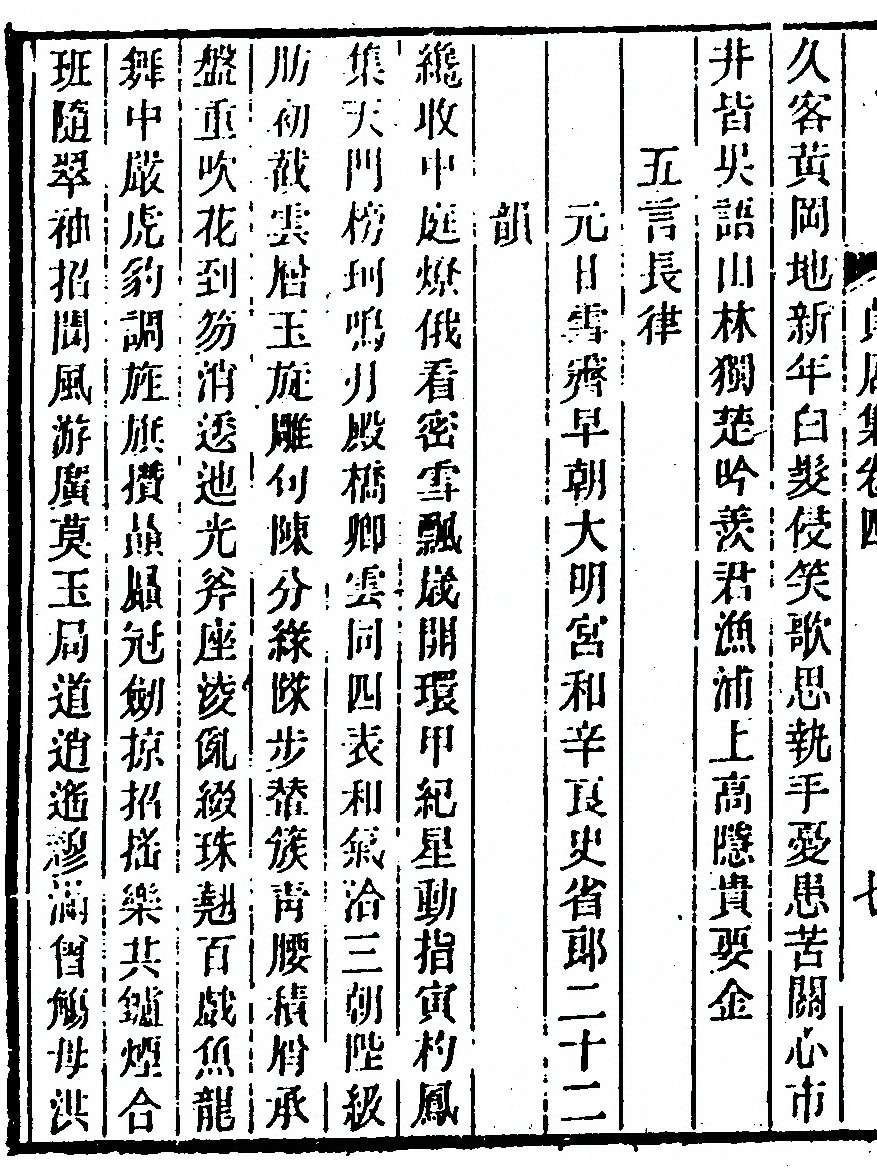 久客黃岡地新年白髮侵笑歌思執手憂患苦關心市
井皆吳語山林獨楚吟羨君漁浦上高隱貴要金
五言長律
元日雪霽早朝大明宮和辛良史省郎二十二
韻
纔收中庭燎俄看密雪飄歲開環甲紀星動指寅杓鳳
集天門榜珂鳴月殿橋卿雲同四表和氣洽三朝陛級
肪初截雲層玉旋雕勻陳分綠隊步輦簇青腰積屑承
盤重吹花到笏消透池光斧座淩亂綴珠翹百戲魚龍
舞中嚴虎豹調旌旗攢贔屭冠劍掠招搖樂共鑪煙合
班隨翠袖招閶風游廣莫玉局道逍遙穆滿曾觴母洪